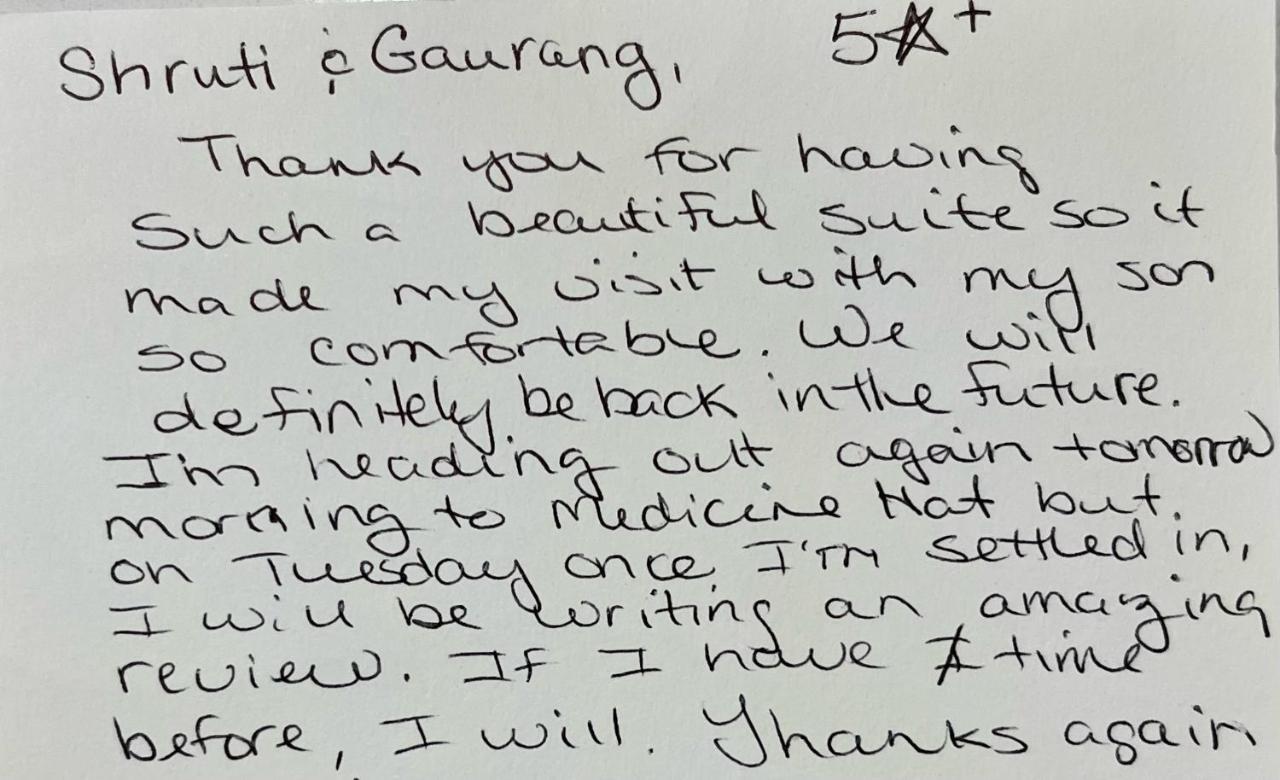 Shruti & Gaurang, 5☆+
Thank you for having
Such a beautiful suite so it
made my visit with my son
so comfortable. We will
definitely be back in the future.
I'm heading out again tomorrow
morning to Medicine Hat but
on Tuesday once I'm settled in,
I will be writing an amazing
review. If I have time
before, I will. Thanks again